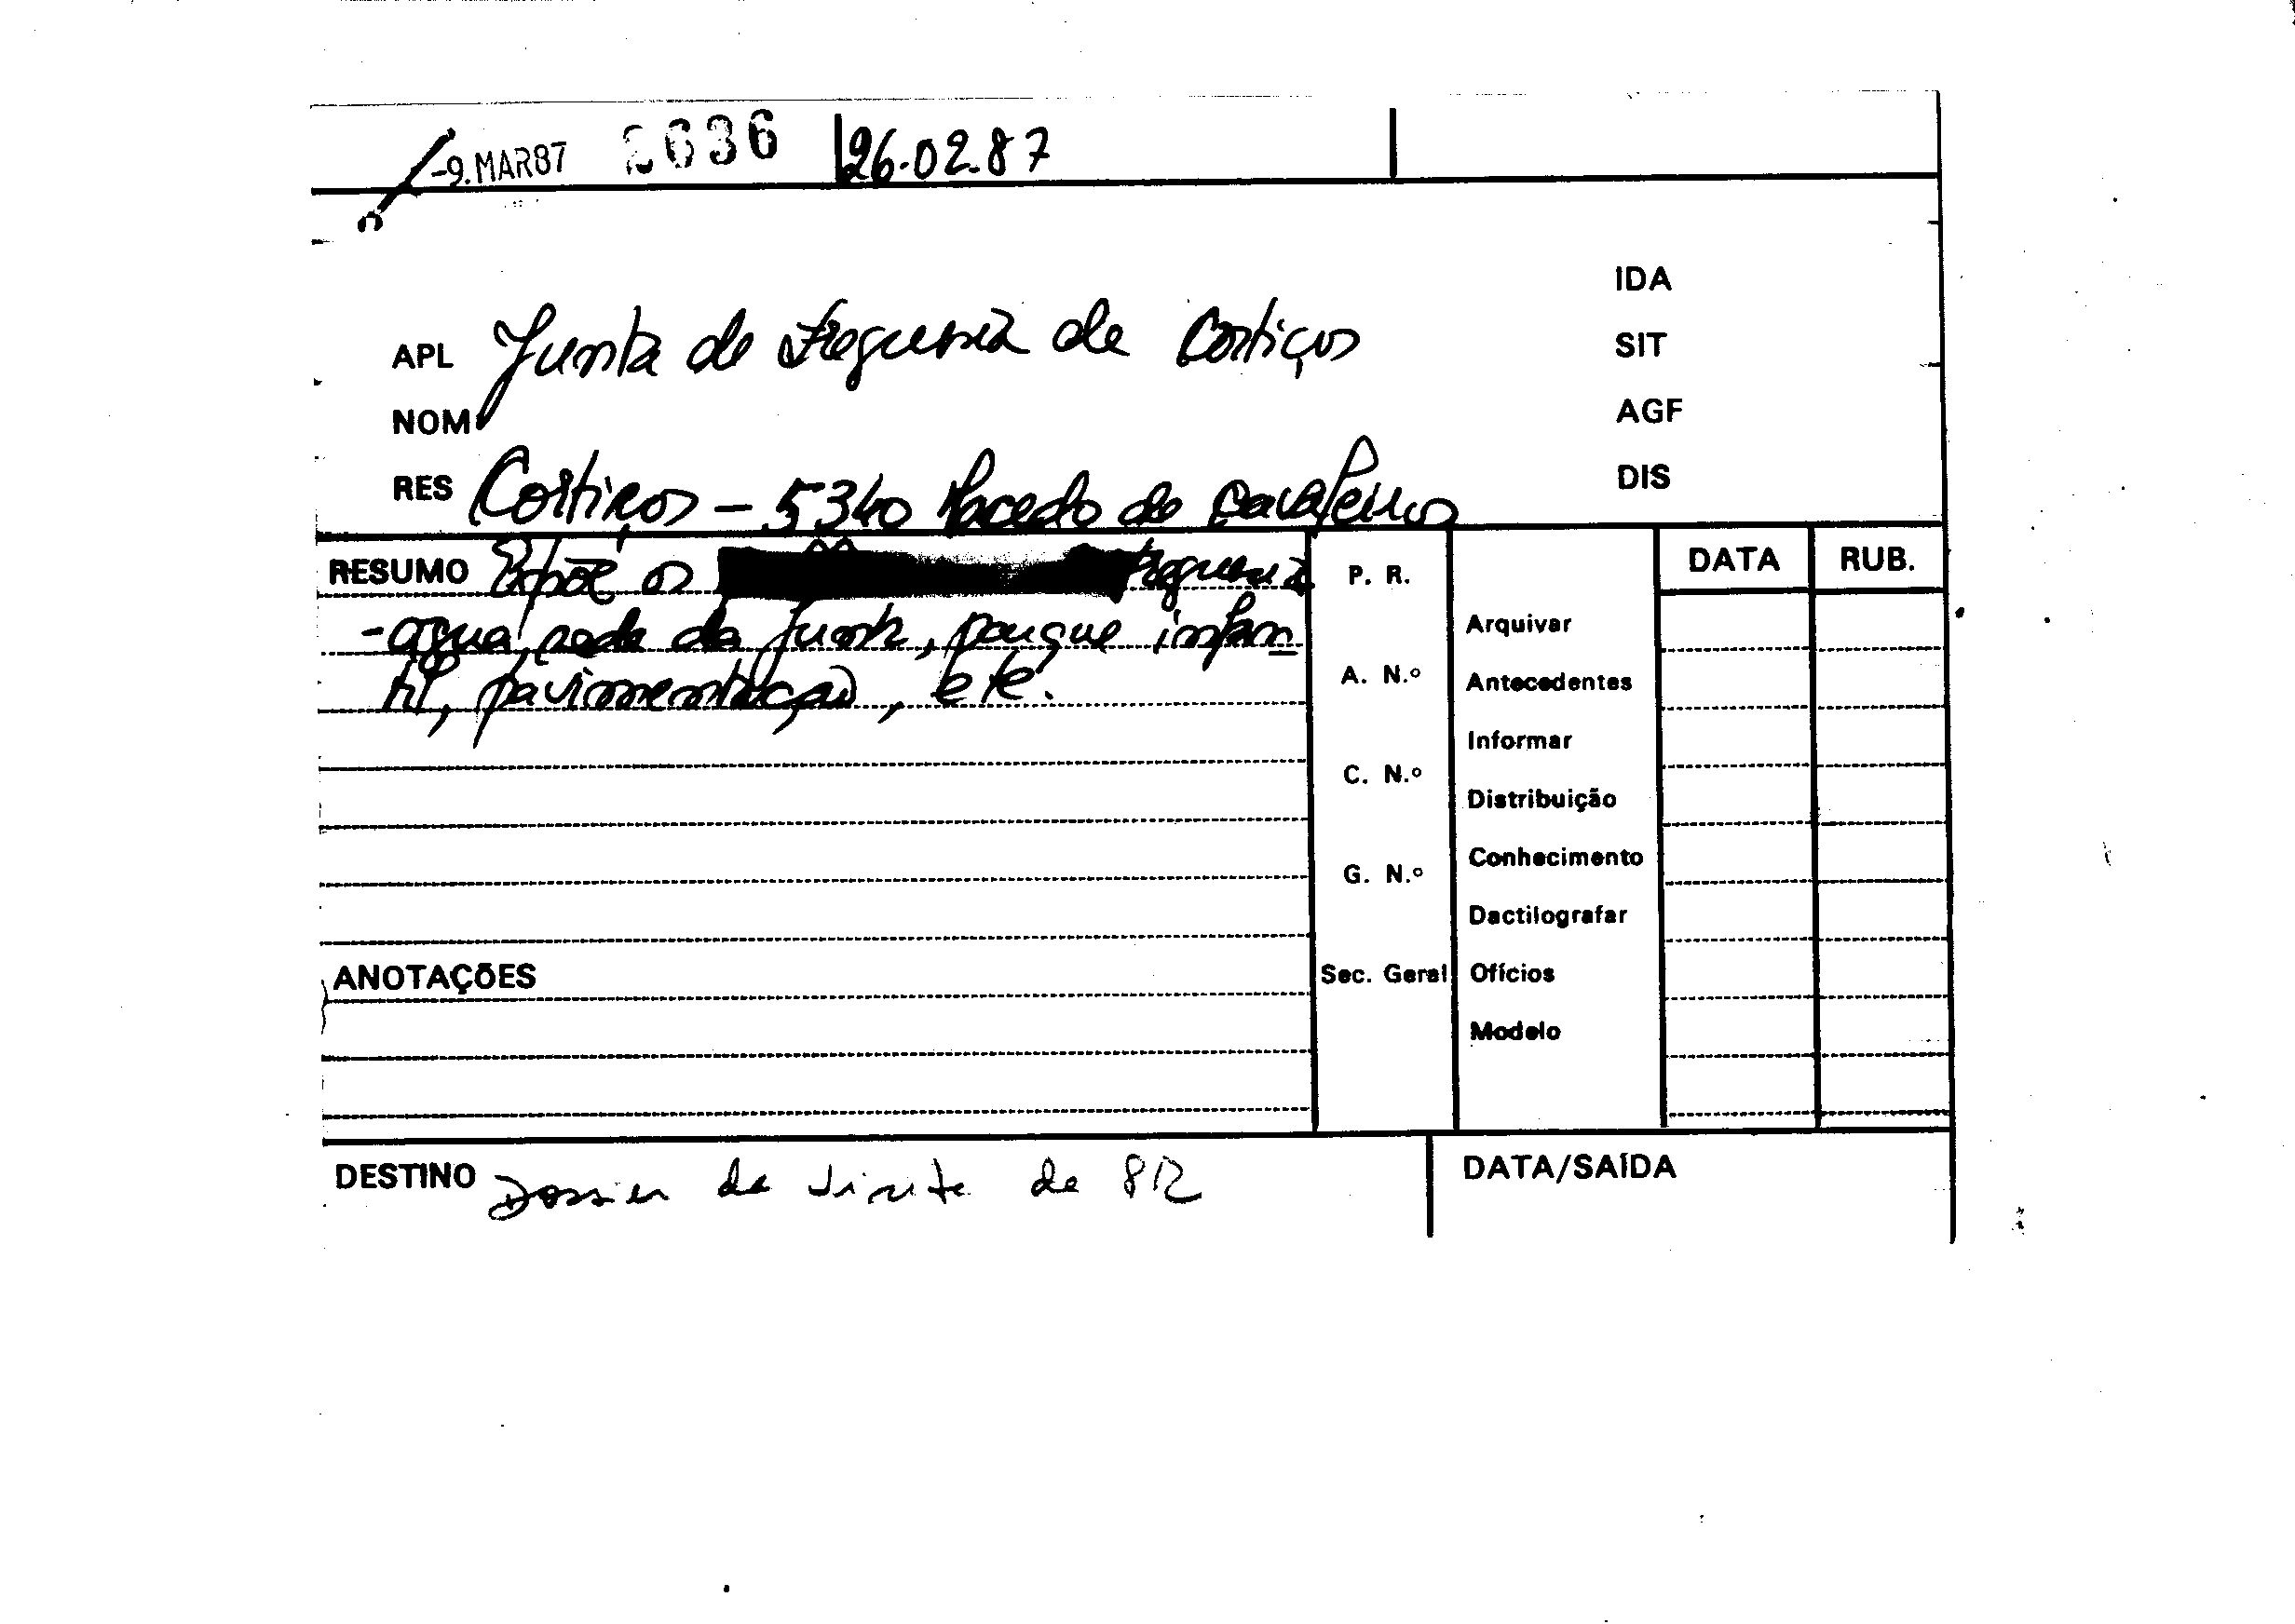 -9.MAR87 2636 26.02.87
IDA
APL Junta de Freguesia de Cortiços
SIT
NOM
AGF
RES Cortiços - 5340 Macedo de Cavaleiros
DIS
RESUMO Expõe os Freguesia
- água, sede da Junta, parque infan
til, pavimentação, etc.
P. R.
A. N.º
C. N.º
G. N.º
Sec. Geral
DATA RUB.
Arquivar
Antecedentes
Informar
Distribuição
Conhecimento
Dactilografar
Ofícios
Modelo
ANOTAÇÕES
DESTINO Dossier da Visita de
DATA/SAÍDA